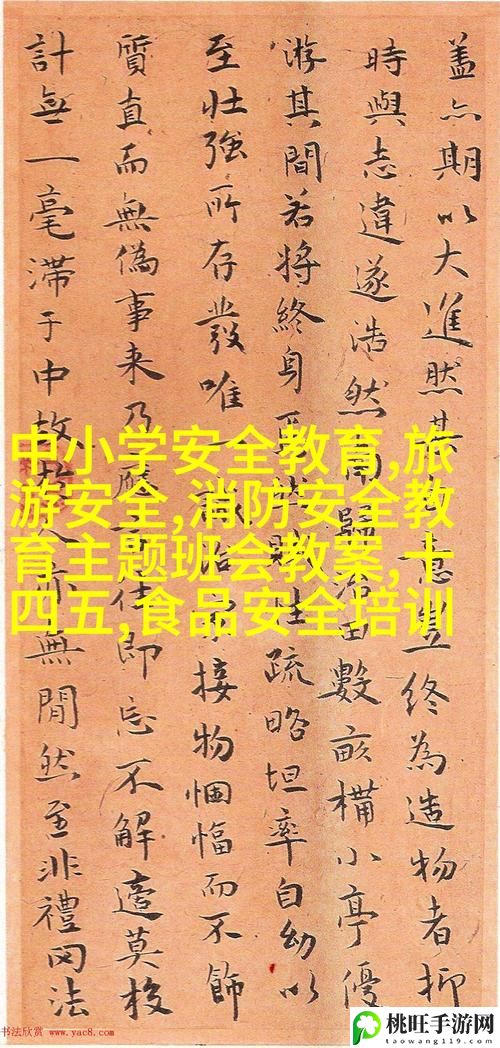 蓋亦期以大進然其
意豈終為造物者抑
時與志違遂浩然
歸
田數畝構小亭優
游其間若將終身
性疏略坦率自幼以
至壯強所存發唯一
接物悃愊而不飾
質直而無偽事来乃應
即忘不解邉莫校
計無一毫滞于中故
人亦無閒然至非禮罔法
中小学安全教育,旅
游安全,消防安全教
育主题班会教案,十
四五,食品安全培训
书法欣赏 www.yac8.com
桃旺手游网
taowang119.com